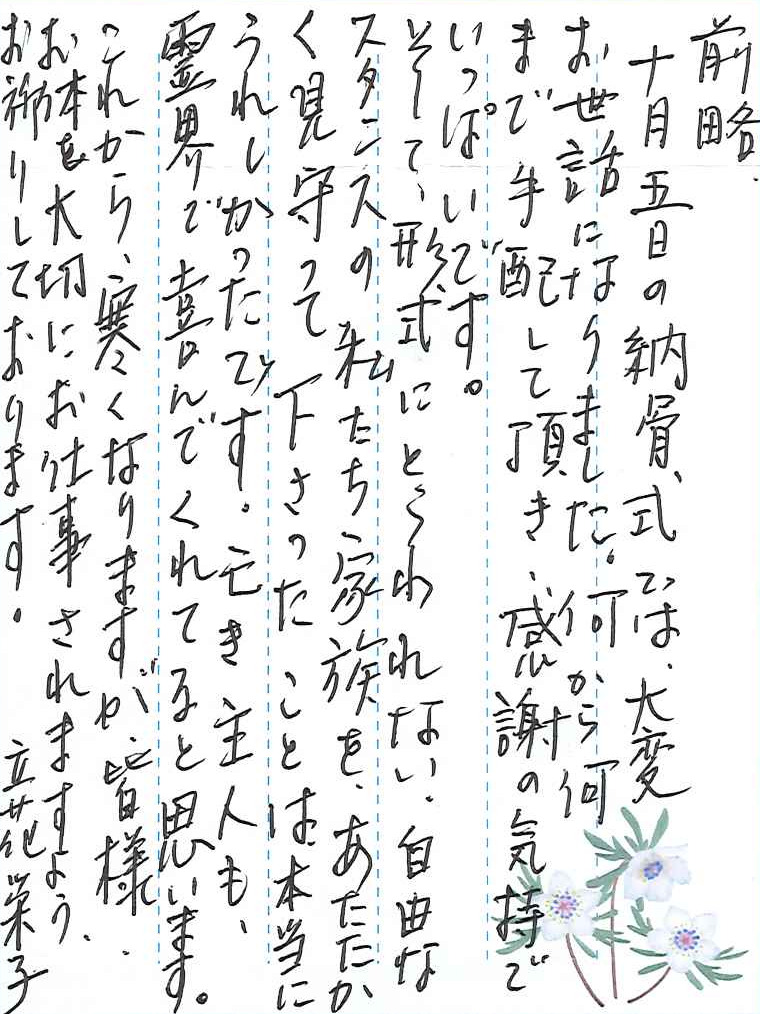 前略
十月五日の納骨式では、大変
お世話になりました。何から何
まで手配して頂き、感謝の気持で
いっぱいです。
そして、形式にとらわれない、自由な
スタンスの私たち家族を、あたたか
く見守って下さったことは、本当に
うれしかったです。亡き主人も、
霊界で喜んでくれてると思います。
これから、寒くなりますが、皆様、
お体を大切にお仕事されますよう、
お祈りしております。
立花栄子